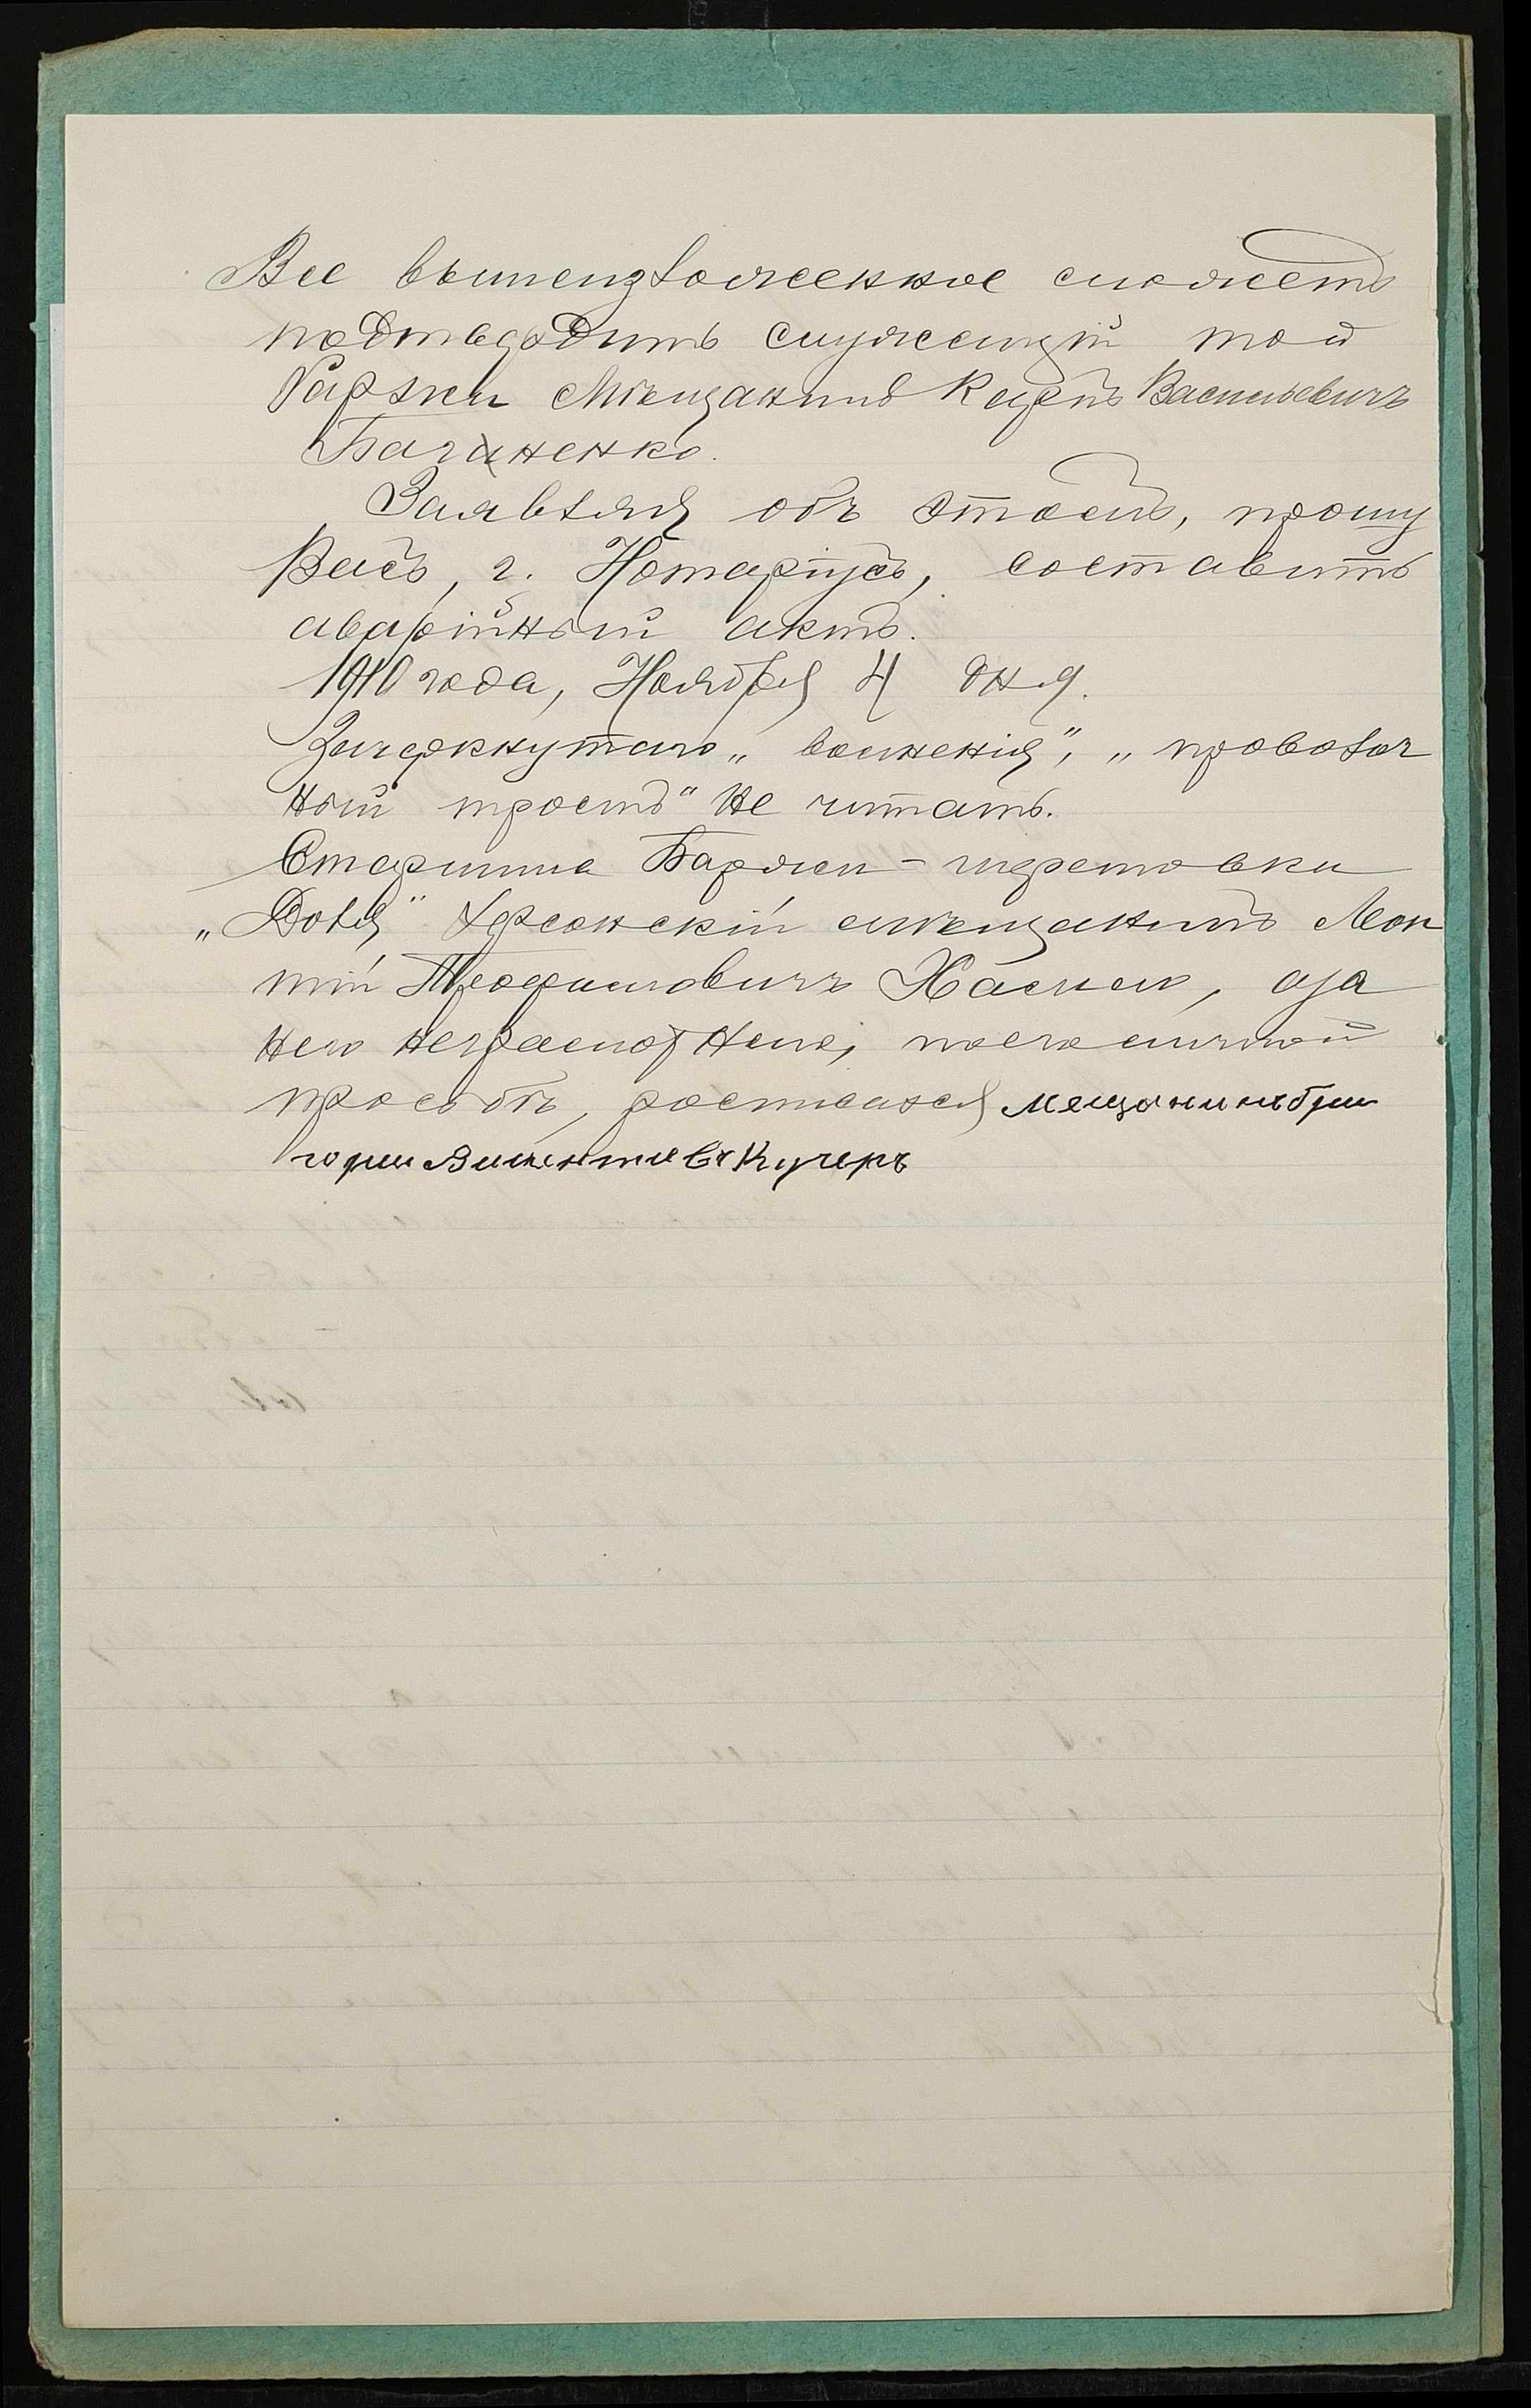 Все вышеизложенное сможетъ
подтвердить служащій той
баржи мѣщанинъ Карпъ Васильевичъ
Багненко.
Заявляя объ этомъ, прошу
Васъ, г. Нотаріусъ, составить
аварійный актъ.
1910 года, Ноября 4 дня.
Зачеркнутаго „волненія", „проволоч
ный тростъ" не читать.
Старшина Баржи-шаретовки
„Доля" Херсонскій мѣщанинъ Леон
тій Трофимовичъ, а за
него неграмотнаго, по его личной
просьбѣ, росписался мещанинъ Гри
гори Викентиевъ Кучеръ